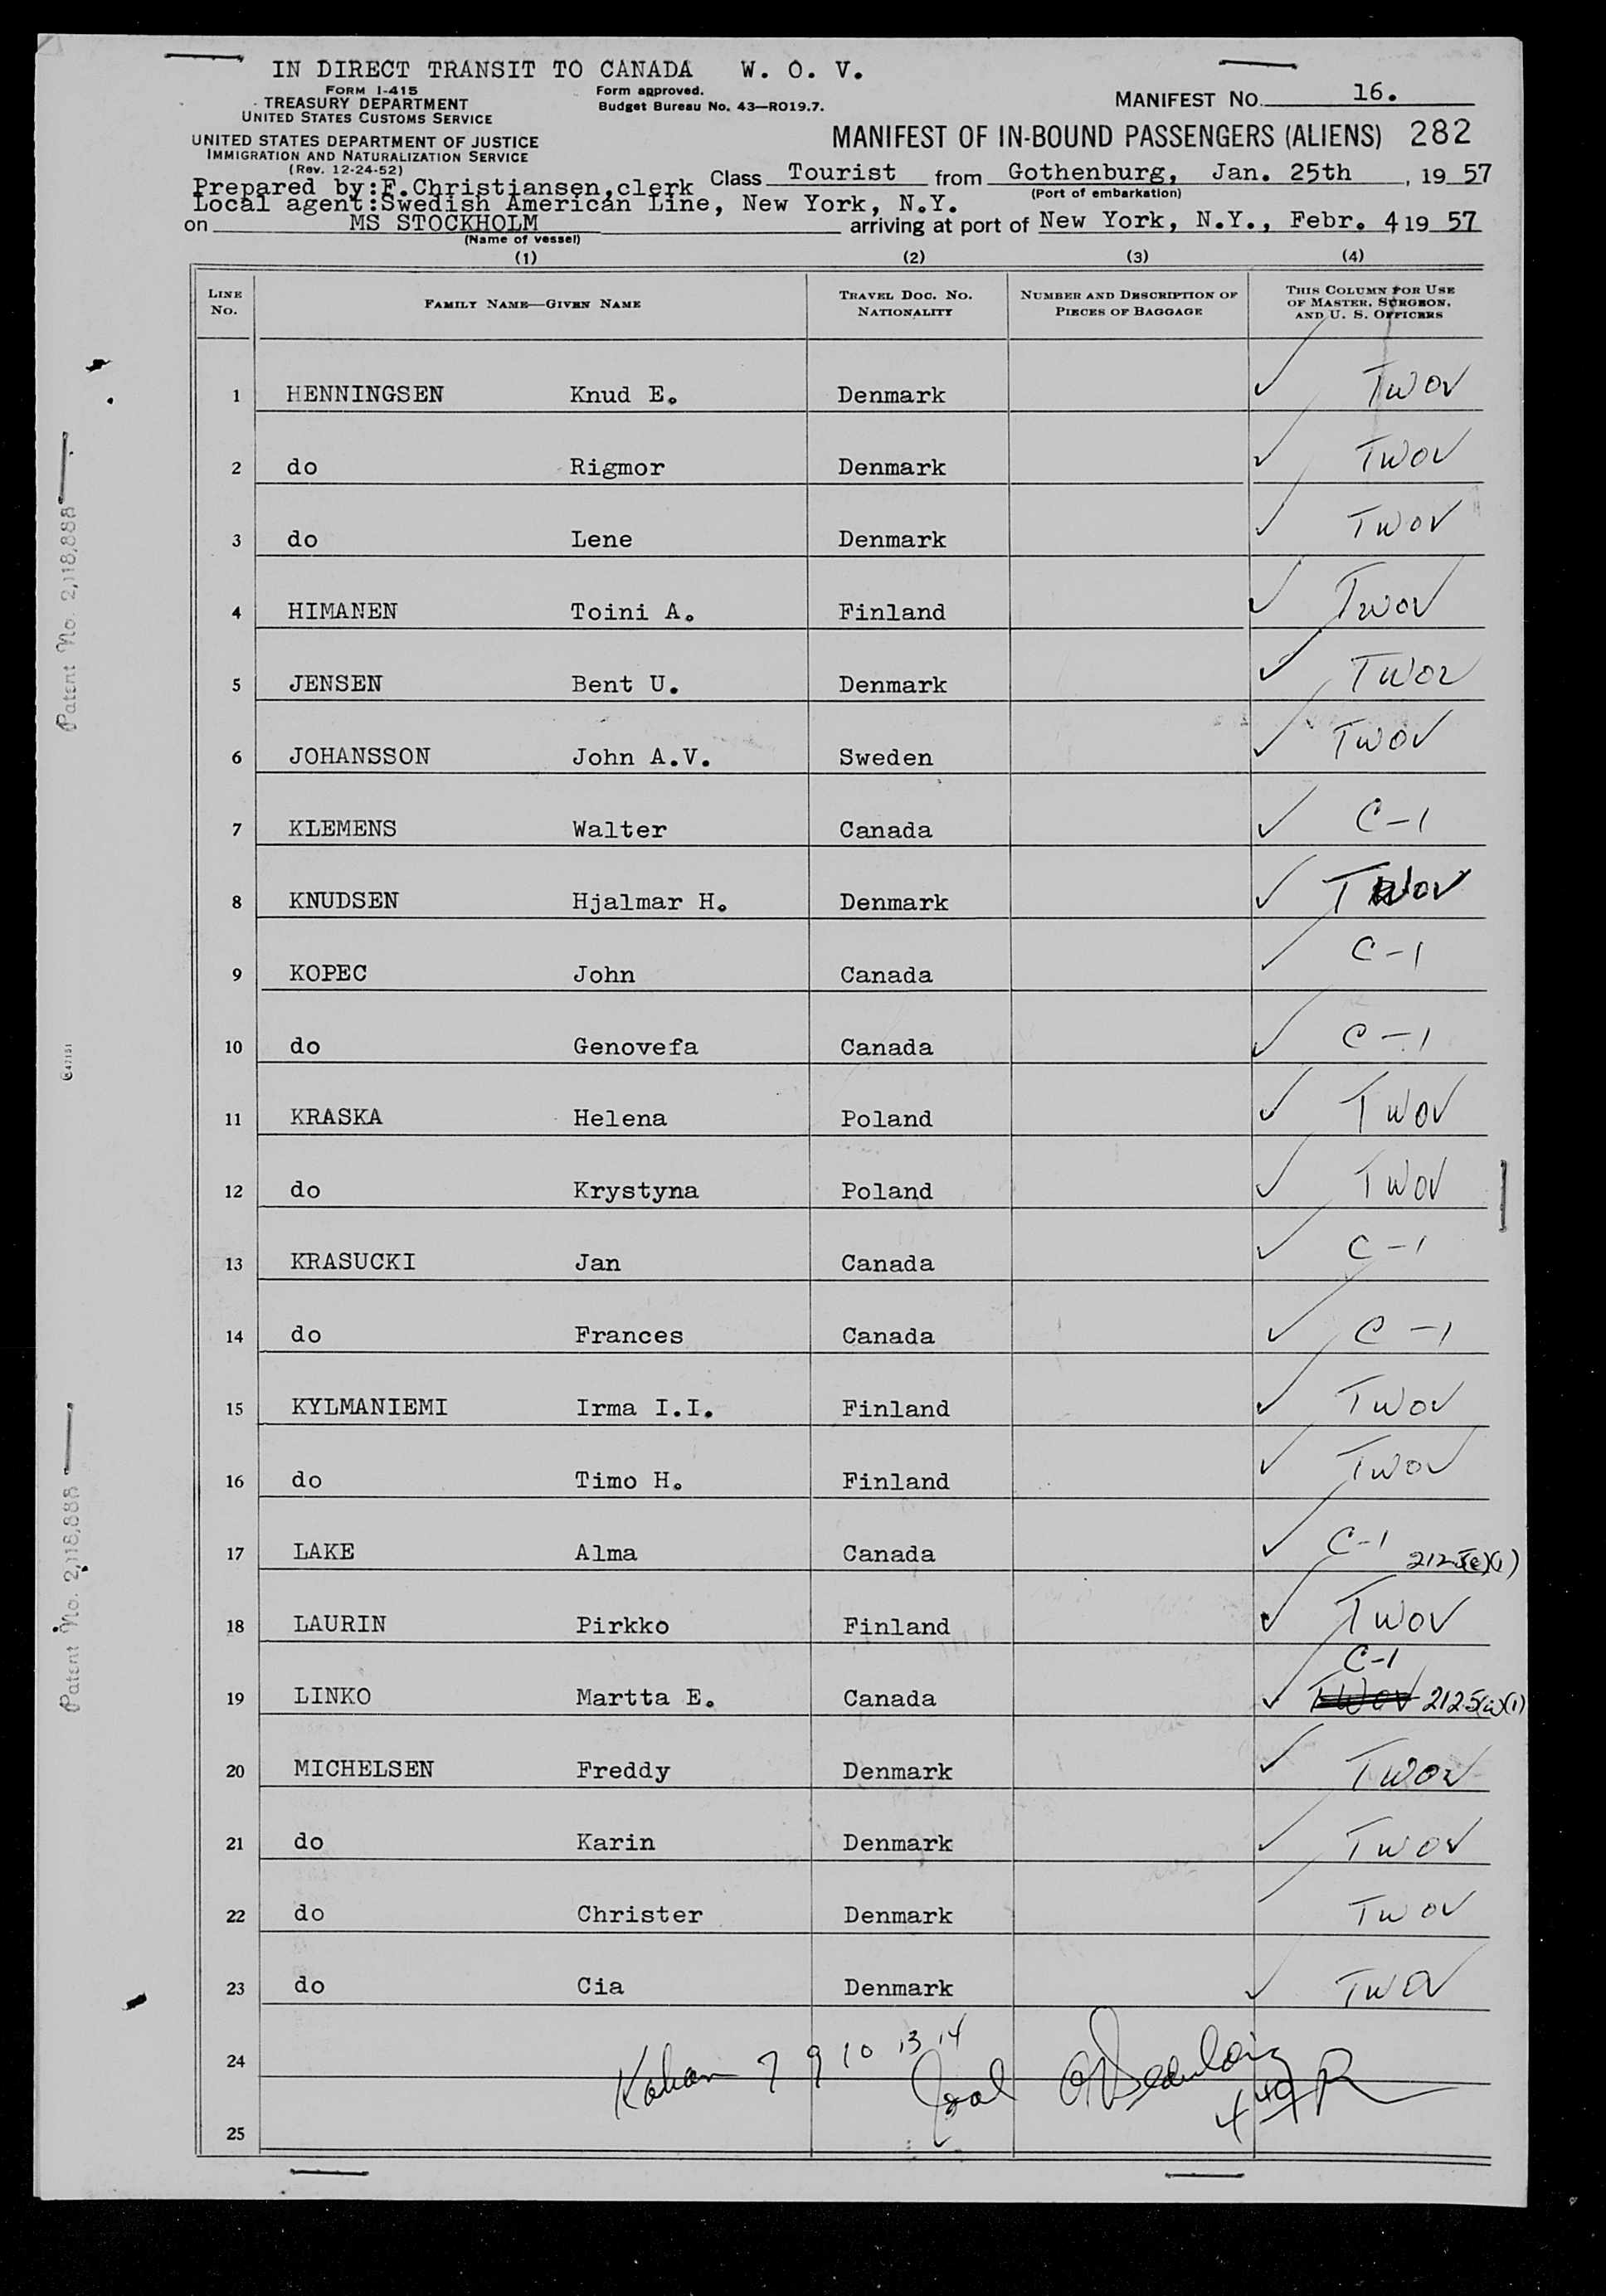 IN DIRECT TRANSIT TO CANADA W. O. V.
FORM I-415
TREASURY DEPARTMENT
UNITED STATES CUSTOMS SERVICE
Form approved.
Budget Bureau No. 43—RO19.7.
MANIFEST NO. 16.
UNITED STATES DEPARTMENT OF JUSTICE
IMMIGRATION AND NATURALIZATION SERVICE
(Rev. 12-24-52)
MANIFEST OF IN-BOUND PASSENGERS (ALIENS) 282
Prepared by:F.Christiansen,clerk Class Tourist from Gothenburg, Jan. 25th, 19 57
(Port of embarkation)
Local agent:Swedish American Line, New York, N.Y.
on MS STOCKHOLM arriving at port of New York, N.Y., Febr. 4 19 57
(Name of vessel)
(1) (2) (3) (4)
LINE NO. FAMILY NAME—GIVEN NAME TRAVEL DOC. NO. NATIONALITY NUMBER AND DESCRIPTION OF PIECES OF BAGGAGE THIS COLUMN FOR USE OF MASTER, SURGEON, AND U. S. OFFICERS
1 HENNINGSEN Knud E. Denmark ✓ TWOV
2 do Rigmor Denmark ✓ TWOV
3 do Lene Denmark ✓ TWOV
4 HIMANEN Toini A. Finland ✓ TWOV
5 JENSEN Bent U. Denmark ✓ TWOV
6 JOHANSSON John A.V. Sweden ✓ TWOV
7 KLEMENS Walter Canada ✓ C-1
8 KNUDSEN Hjalmar H. Denmark ✓ TWOV
9 KOPEC John Canada ✓ C-1
10 do Genovefa Canada ✓ C-1
11 KRASKA Helena Poland ✓ TWOV
12 do Krystyna Poland ✓ TWOV
13 KRASUCKI Jan Canada ✓ C-1
14 do Frances Canada ✓ C-1
15 KYLMANIEMI Irma I.I. Finland ✓ TWOV
16 do Timo H. Finland ✓ TWOV
17 LAKE Alma Canada ✓ C-1
18 LAURIN Pirkko Finland ✓ TWOV
C-1
19 LINKO Martta E. Canada ✓ TWOV
20 MICHELSEN Freddy Denmark ✓ TWOV
21 do Karin Denmark ✓ TWOV
22 do Christer Denmark TWOV
23 do Cia Denmark ✓ TWOV
24 7 9 10 13 14
25
Patent No. 2,118,888
Patent No. 2,118,888